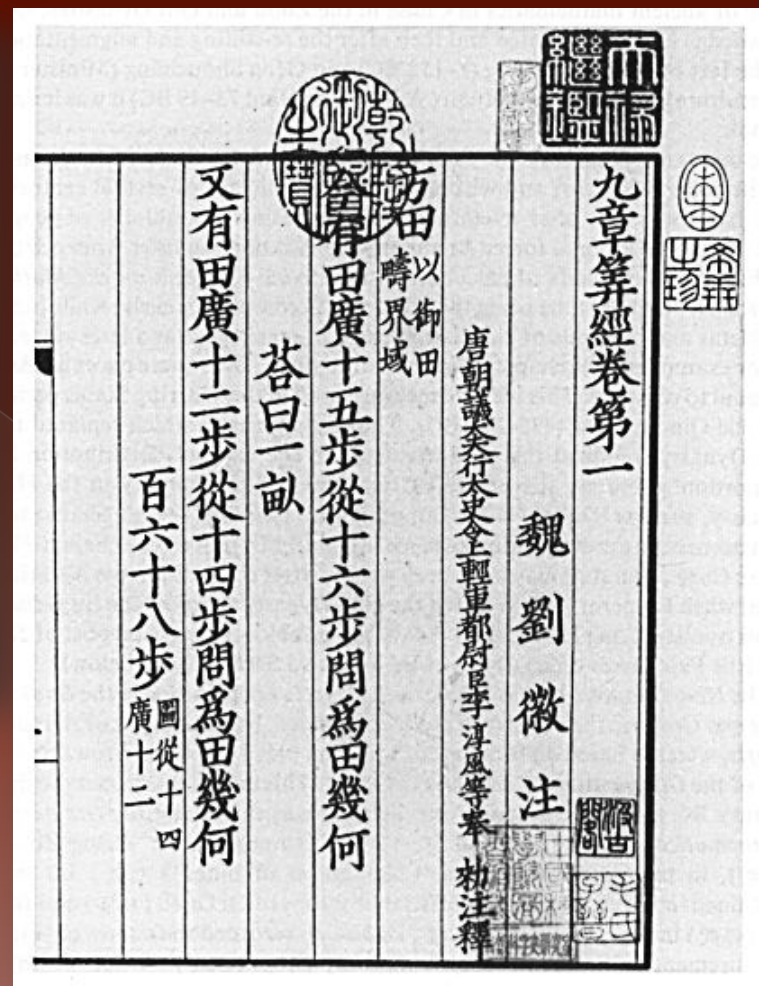 天祿繼鑑
乾隆御覽之寶
希世之珍
九章筭經卷第一
魏劉徽注
唐朝議大夫行太史令上輕車都尉臣李淳風等奉 勑注釋
方田
以御田
疇界域
今有田廣十五步從十六步問爲田幾何
荅曰一畝
又有田廣十二步從十四步問爲田幾何
百六十八步
圖從十四
廣十二
汲古閣